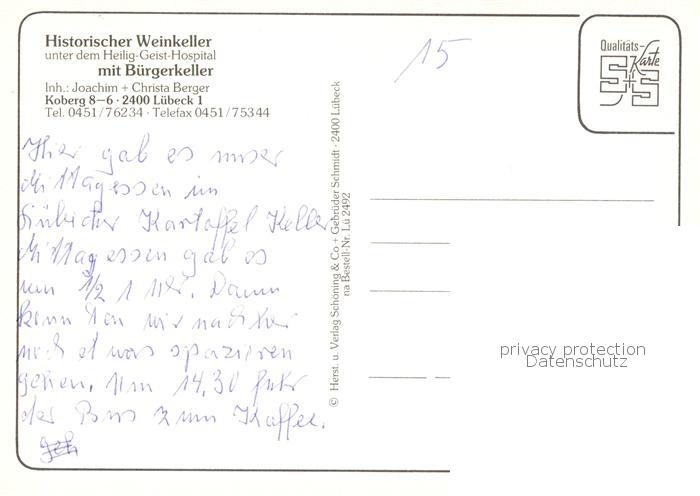 Historischer Weinkeller
unter dem Heilig-Geist-Hospital
mit Bürgerkeller
Inh.: Joachim + Christa Berger
Koberg 8–6 · 2400 Lübeck 1
Tel. 0451/76234 · Telefax 0451/75344
15
Qualitäts-
Karte
S+S
Hier gab es unser
Mittagessen im
Kartoffel Keller
Mittagessen gab es
um 1/2 1 Uhr. Dann
konnten wir nachher
noch etwas spazieren
gehen. Um 14.30 fuhr
der Bus zum Kaffee.
© Herst. u. Verlag Schöning & Co + Gebrüder Schmidt · 2400 Lübeck
na Bestell-Nr. Lü 2492
privacy protection
Datenschutz